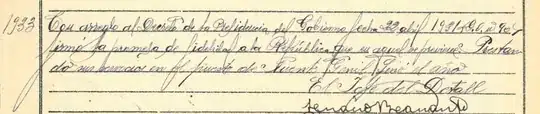 1933 Con arreglo al Decreto de la Presidencia del Gobierno fecha 22 abril 1931 (C. L. nº
firmó la promesa de fidelidad a la República que en aquel se previene. Prestan
do sus servicios en el puesto de Puente Genil finó el año
El Jefe del Detall